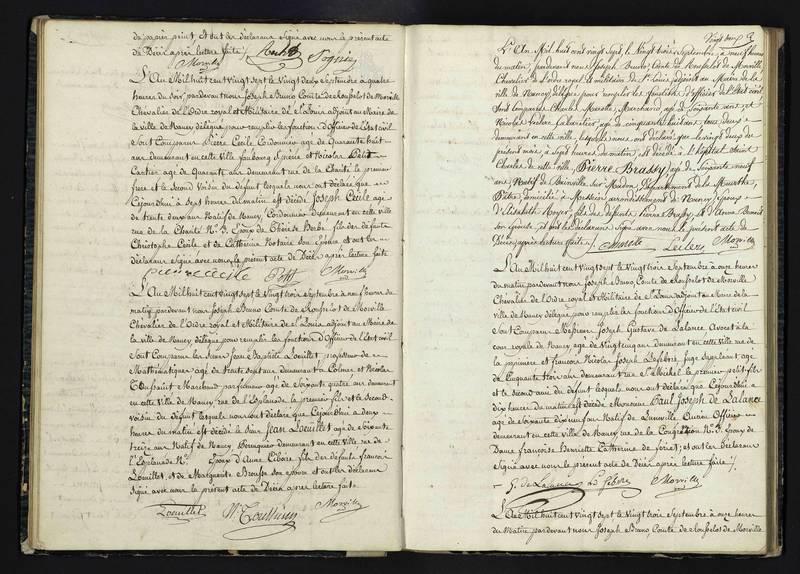 de papier peint et ont les déclarans signé avec nous le présent acte
de Décès après lecture faite /.
Morville
L'An Mil huit cent vingt sept le Vingt deux Septembre à quatre
heures du soir, pardevant nous Joseph Bruno Comte de Rousselot de Morville
Chevalier de l'Ordre royal et Militaire de St Louis adjoint au Maire de
la ville de Nancy délégué pour remplir les fonctions d'Officier de l'état civil
sont Comparus Pierre Cécile Cordonnier agé de Quarante huit
ans demeurant en cette Ville faubourg St Pierre et Nicolas Petit
Cartier agé de Quarante ans demeurant rue de la Charité le premier
frère et le second Voisin du défunt lesquels nous ont déclaré que
Cejourd'hui à sept heures du matin est décédé Joseph Cécile agé
de trente deux ans Natif de Nancy, Cordonnier demeurant en cette ville
rue de la Charité No Époux de Thérèse Barbe fils des défunts
Christophe Cécile et de Catherine son Épouse et ont les
déclarans signé avec nous le présent acte de Décès après lecture faite
pierre cecile Petit Morville
L'An Mil huit cent Vingt sept le Vingt trois Septembre à neuf heures du
matin pardevant nous Joseph Bruno Comte de Rousselot de Morville
Chevalier de l'Ordre royal et Militaire de St Louis adjoint au Maire de
la ville de Nancy délégué pour remplir les fonctions d'Officier de l'état civil
Sont Comparus les Sieurs Jean Baptiste Louillet professeur de
Mathématiques agé de trente sept ans demeurant à Colmar et Nicolas
Toussaint Marchand parfumeur agé de soixante quatre ans demeurant
en cette Ville de Nancy rue de l'Esplanade le premier fils et le second
voisin du défunt lesquels nous ont déclaré que Cejourd'hui à deux
heures du matin est décédé le Sieur Jean Louillet agé de soixante
treize ans Natif de Nancy Perruquier demeurant en cette Ville rue de
l'Esplanade No Époux d'Anne fils des défunts François
Louillet et de Marguerite son épouse et ont les déclarans
Signé avec nous le présent acte de Décès après lecture faite
Louillet N. Toussaint Morville
L'An Mil huit cent vingt sept le Vingt trois Septembre à neuf heures
du matin, pardevant nous Joseph Bruno Comte de Rousselot de Morville
Chevalier de l'ordre royal et militaire de St Louis adjoint au Maire de la
ville de Nancy délégué pour remplir les fonctions d'officier de l'état civil
sont comparus Charles Marchand agé de soixante ans et
Nicolas Leclerc agé de cinquante huit ans tous deux
demeurant en cette ville, lesquels nous ont déclaré que le vingt deux du
présent mois à sept heures du matin, est décédé à l'hôpital Saint
Charles de cette ville, Pierre Brassy, agé de soixante neuf
ans Natif de Bainville sur Madon, Département de la Meurthe,
Pâtre, domicilié à arrondissement de Nancy, Époux
d'Elisabeth Noyer, fils des défunts Pierre Brassy, et d'Anne Benoit
son épouse, et ont les déclarans signé avec nous le présent acte de
Décès après lecture faite /. Leclerc Morville
L'An Mil huit cent vingt sept le Vingt trois Septembre à onze heures
du matin pardevant nous Joseph Bruno Comte de Rousselot de Morville
Chevalier de l'Ordre royal et Militaire de St Louis adjoint au Maire de la
ville de Nancy délégué pour remplir les fonctions d'Officier de l'état civil
Sont Comparus Messieurs Joseph Gustave de Lalance Avocat à la
cour royale de Nancy agé de Vingt cinq ans demeurant en cette Ville rue de
la pépinière et François Nicolas Joseph Lefebvre Juge suppléant agé
de Cinquante trois ans demeurant rue St Michel le premier petit-fils
et le second ami du défunt lesquels nous ont déclaré que Cejourd'hui à
dix heures du matin est décédé Monsieur Paul Joseph de Lalance
agé de soixante dix neuf ans Natif de Lunéville ancien Officier
demeurant en cette Ville de Nancy rue de la Congrégation No Époux de
Dame Françoise Henriette Catherine de foriet; et ont les déclarans
Signé avec nous le présent acte de Décès après lecture faite /.
G. de Lalance Morville
L'An Mil huit cent vingt sept le Vingt trois Septembre à onze heures
du Matin pardevant nous Joseph Bruno Comte de Rousselot de Morville